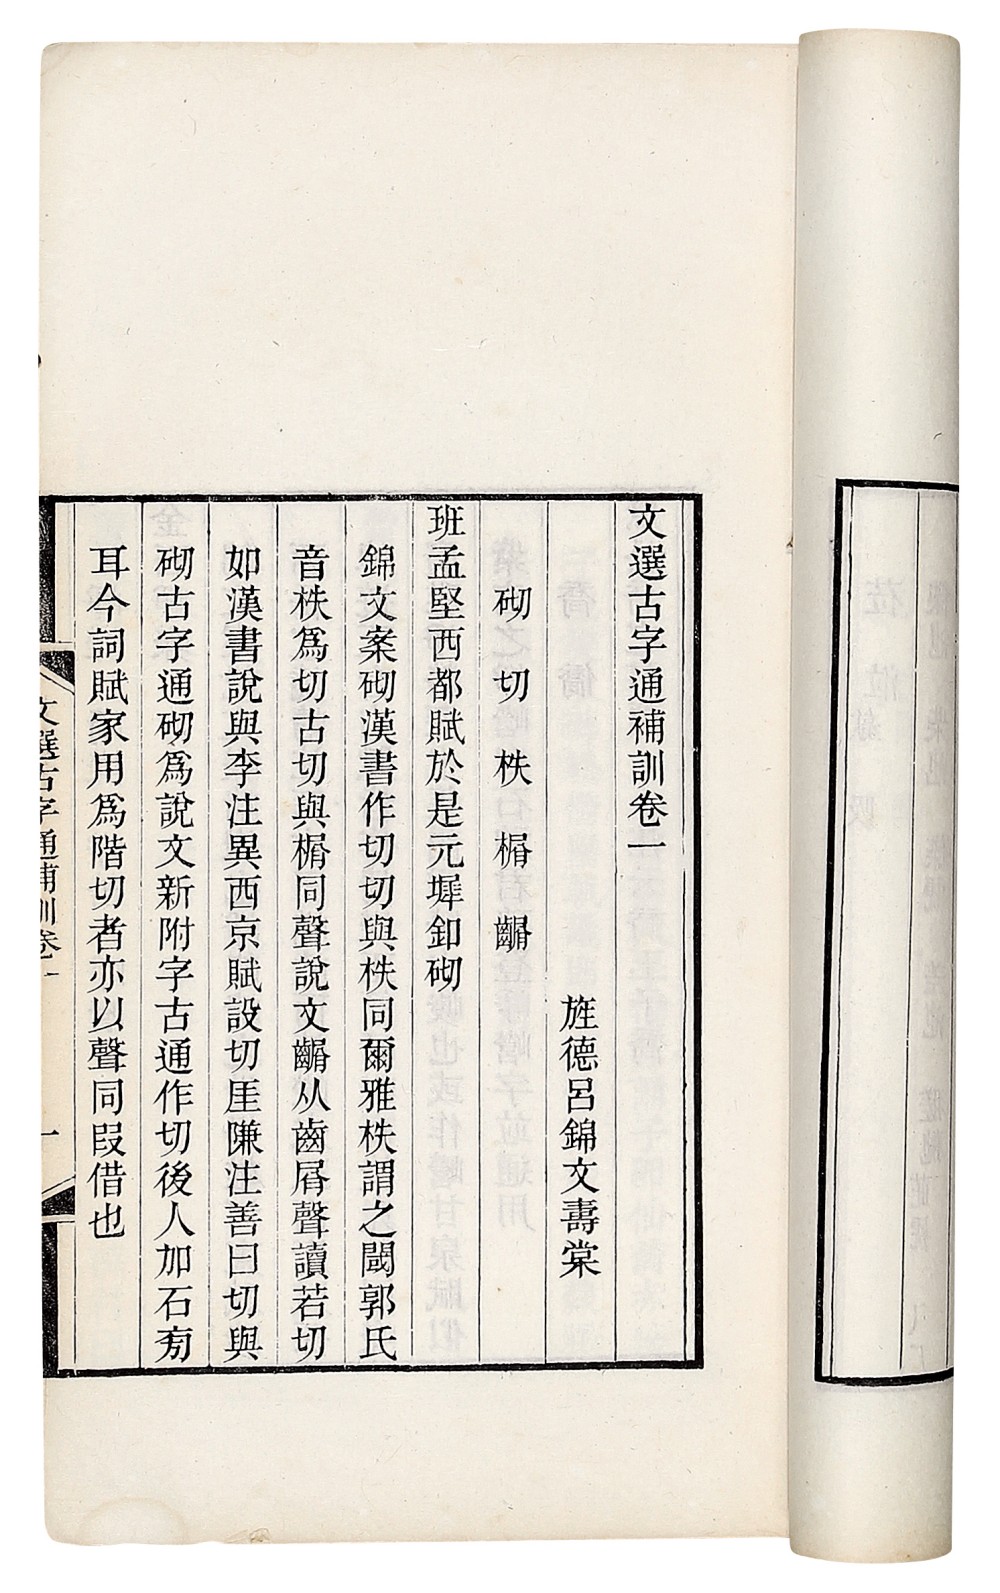 文選古字通補訓卷一
旌德呂錦文壽棠
砌 切 柣 榍 𪙨
班孟堅西都賦於是元墀釦砌
錦文案砌漢書作切切與柣同爾雅柣謂之閾郭氏
音柣爲切古切與榍同聲說文𪙨从齒屑聲讀若切
如漢書說與李注異西京賦設切厓隒注善曰切與
砌古字通砌爲說文新附字古通作切後人加石旁
耳今詞賦家用爲階切者亦以聲同叚借也
文選古字通補訓卷一
一